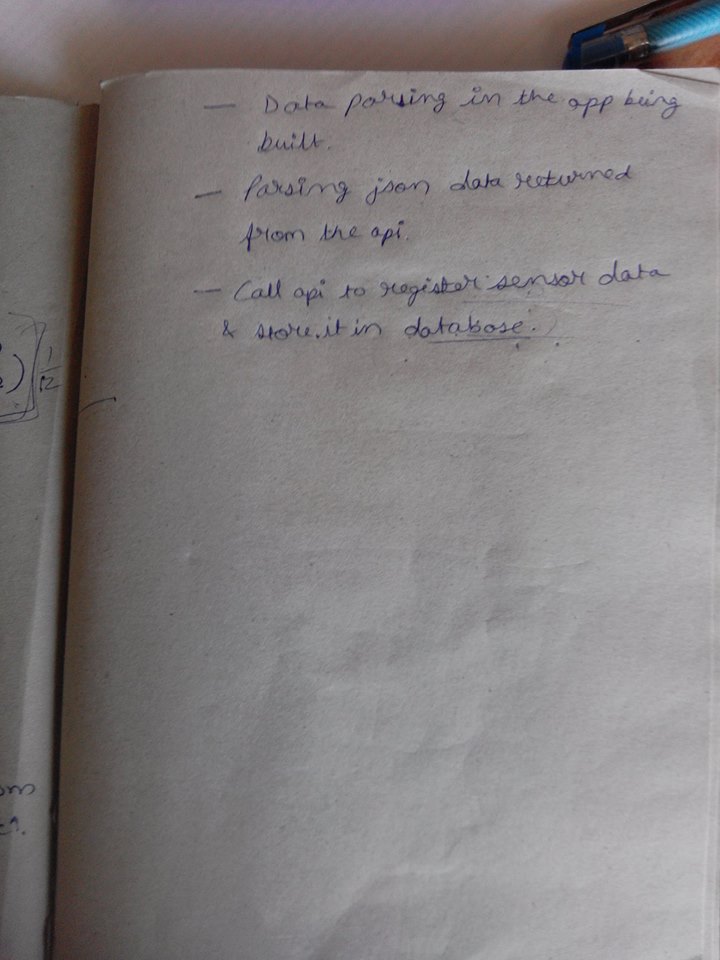 — Data parsing in the app being
built.
— Parsing json data returned
from the api.
— Call api to register sensor data
& store it in database.